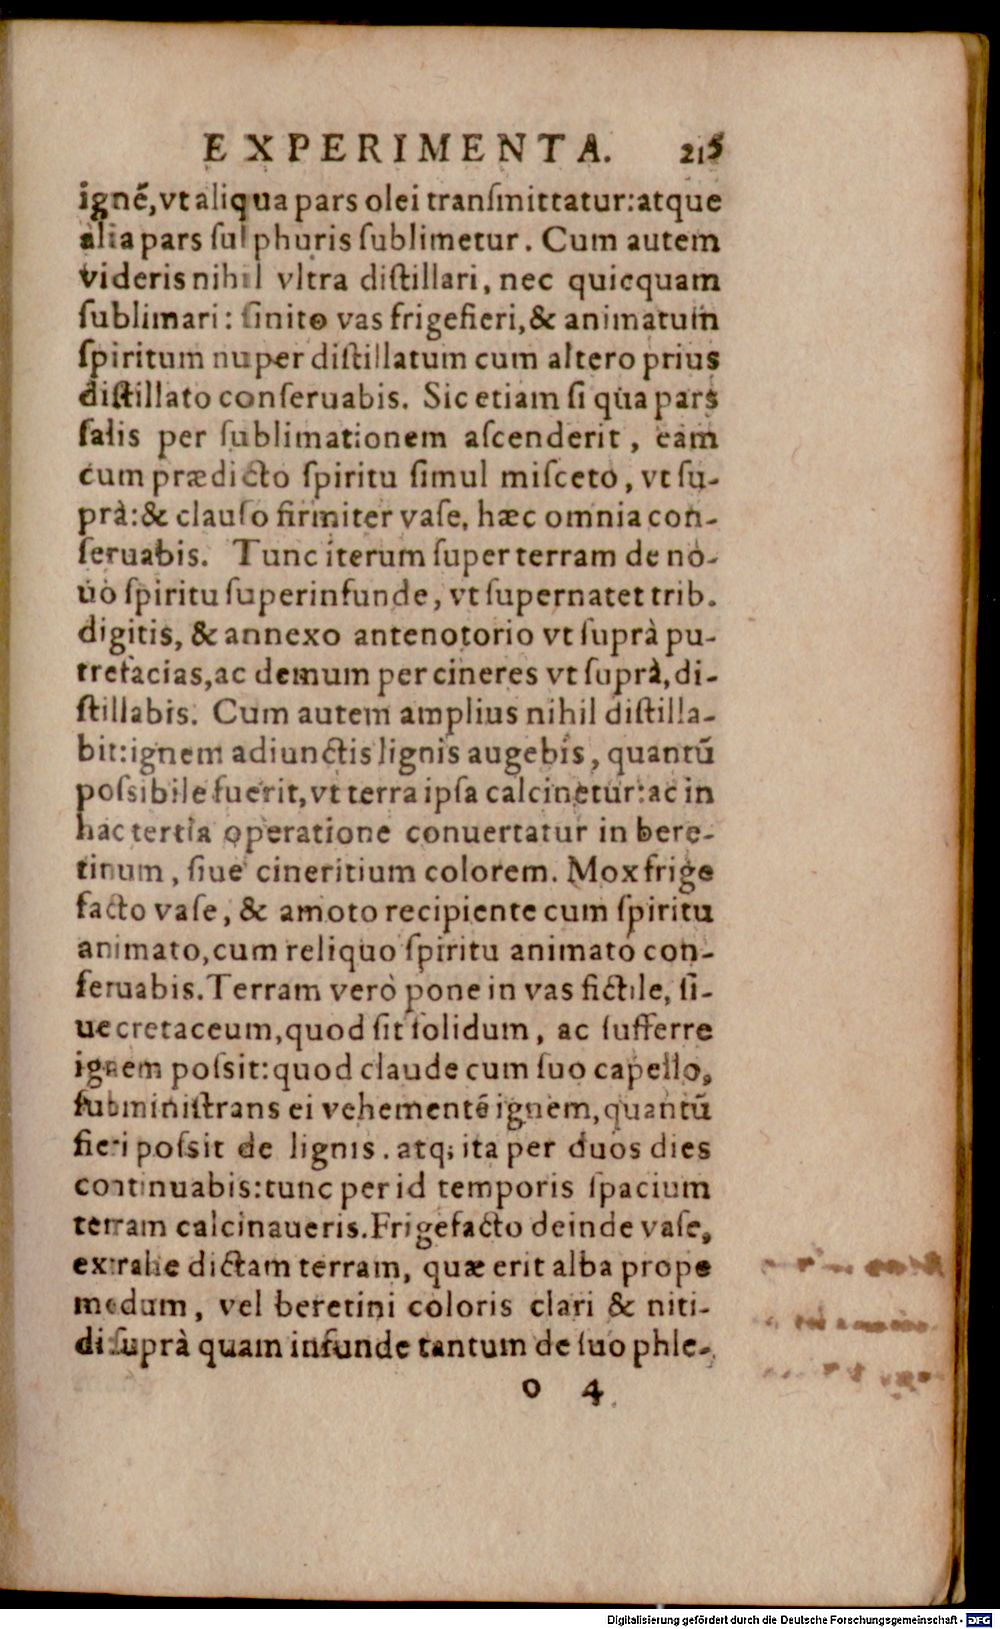 EXPERIMENTA. 215
ignē, vt aliqua pars olei tranſmittatur: atque
alia pars ſulphuris ſublimetur. Cum autem
videris nihil vltra diſtillari, nec quicquam
ſublimari: ſinito vas frigefieri, & animatum
ſpiritum nuper diſtillatum cum altero prius
diſtillato conſeruabis. Sic etiam ſi qua pars
ſalis per ſublimationem aſcenderit, eam
cum prædicto ſpiritu ſimul miſceto, vt ſu-
prà: & clauſo firmiter vaſe, hæc omnia con-
ſeruabis. Tunc iterum ſuper terram de no-
uo ſpiritu ſuperinfunde, vt ſupernatet trib.
digitis, & annexo antenotorio vt ſuprà pu-
trefacias, ac demum per cineres vt ſuprà, di-
ſtillabis. Cum autem amplius nihil diſtilla-
bit: ignem adiunctis lignis augebis, quantū
poſsibile fuerit, vt terra ipſa calcinetur: ac in
hac tertia operatione conuertatur in bere-
tinum, ſiue cineritium colorem. Mox frige
facto vaſe, & amoto recipiente cum ſpiritu
animato, cum reliquo ſpiritu animato con-
ſeruabis. Terram verò pone in vas fictile, ſi-
ue cretaceum, quod ſit ſolidum, ac ſufferre
ignem poſsit: quod claude cum ſuo capello,
ſubminiſtrans ei vehementē ignem, quantū
fieri poſsit de lignis. atq; ita per duos dies
continuabis: tunc per id temporis ſpacium
terram calcinaueris. Frigefacto deinde vaſe,
extrahe dictam terram, quæ erit alba prope
modum, vel beretini coloris clari & niti-
di ſuprà quam infunde tantum de ſuo phle-
O 4
Digitalisierung gefördert durch die Deutsche Forschungsgemeinschaft - DFG